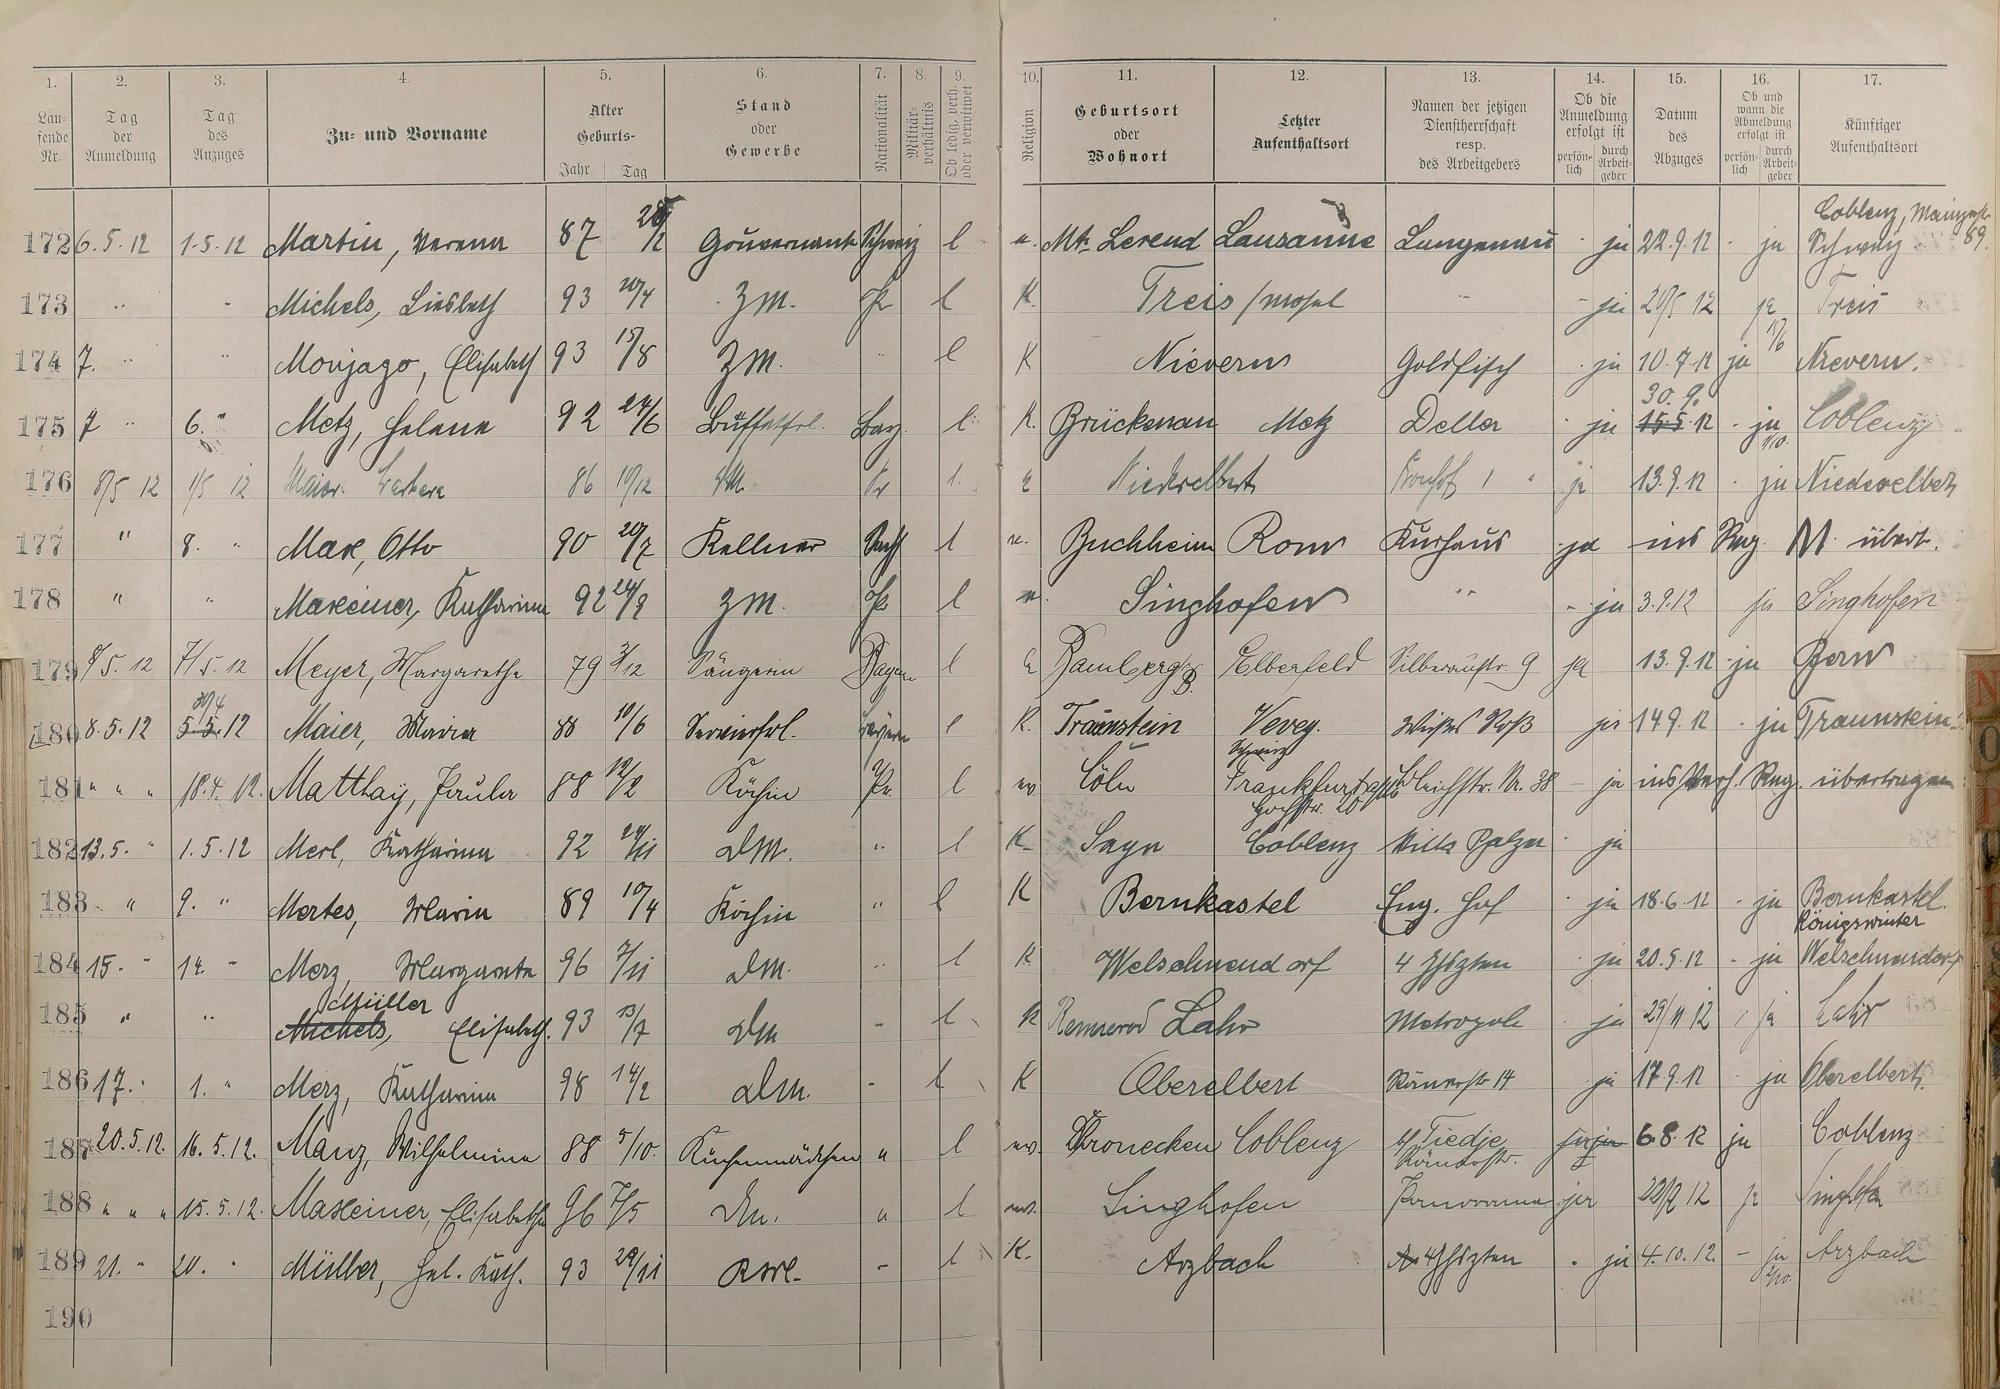 1. 2. 3. 4. 5. 6. 7. 8. 9. 10. 11. 12. 13. 14. 15. 16. 17.
Laufende Nr. Tag der Anmeldung Tag des Anzuges Zu- und Vorname Alter Geburts- Jahr Tag Stand oder Gewerbe Nationalität Militärverhältnis Ob ledig, verh. oder verwitwet Religion Geburtsort oder Wohnort Letzter Aufenthaltsort Namen der jetzigen Dienstherrschaft resp. des Arbeitgebers Ob die Anmeldung erfolgt ist persönlich durch Arbeitgeber Datum des Abzuges Ob und wann die Abmeldung erfolgt ist persönlich durch Arbeitgeber Künftiger Aufenthaltsort
172 6.5.12 1.5.12 Martin, Verena 87 /2 Gouvernante Schweiz l Lausanne Langenau ja 22.9.12 ja Coblenz, Schweiz 89
173 " " Michels, Liesbeth 93 20/4 ZM. Pr l K. Treis /Mosel " - ja 20/5 12 ja Treis
174 7. " " Monjago, Elisabeth 93 15/8 ZM. " l K Nievern Goldfisch ja 10.7.12 ja Nievern.
175 7 " 6. " Metz, Helene 92 24/6 Buffetfrl. Bay. l K. Brückenau Metz Deller ja 15.5.12 30.9. ja 1/10. Coblenz
176 8/5 12 1/5 12 Maier Barbara 86 10/12 l. Niederelbert ja 13.9.12 ja Niederelbert
177 " 8. " Marx, Otto 90 20/7 Kellner l Buchheim Rom Kurhaus ja ins Reg. M. übert.
178 " " Maxeiner, Katharina 92 24/9 ZM. Pr. l Singhofen " - ja 3.9.12 ja Singhofen
179 8/5. 12 7/5. 12 Meyer, Margarethe 79 3/12 Sängerin Bayern l Bamberg Elberfeld Silberaustr. 9 ja 13.9.12 ja Bern
180 8.5.12 5.5.12 30/4 Maier, Maria 88 10/6 Servierfrl. Bayern l K. Traunstein Vevey. Schweiz Weißes Roß ja 14 9.12 ja Traunstein
181 " " " 18.4.12. Matthay, Paula 88 12/2 Köchin Pr. l ev. Cöln Frankfurt Hochstr. 20 Bleichstr. Nr. 38 - ja ins Reg. übertragen
182 13.5. " 1.5.12 Merl, Katharina 92 24/11 DM. " l K. Sayn Coblenz Villa Balzer ja
183 " 9. " Mertes, Maria 89 10/4 Köchin " l K Bernkastel Eng. Hof ja 18.6.12 ja Bernkastel.
184 15. " 14. " Merz, Margareta 96 7/11 DM. " l K Welschneudorf 4 Thürmen ja 20.5.12 ja Königswinter Welschneudorf
185 " " Michels, Müller Elisabeth. 93 13/7 DM - l K Rennerod Lahr Metropole ja 29/11 12 ja Lahr
186 17. " 1. " Merz, Katharina 98 14/2 DM. - l K Oberelbert Römerstr 14 ja 17 9.12 ja Oberelbert.
187 20.5.12. 16.5.12. Manz, Wilhelmine 88 5/10. Küchenmädchen " l ev. Coblenz b/ Tiedje Römerstr. 6.8.12 ja Coblenz
188 " " " 15.5.12. Maxeiner, Elisabethe 96 7/5 DM. " l ev. Singhofen Panorama ja 22/9 12 ja Singhofen
189 21. " 20. " Müller, Hel. Kath. 93 29/11 - l K. Arzbach 4 Thürmen ja 4.10.12. - ja 2/10. Arzbach
190